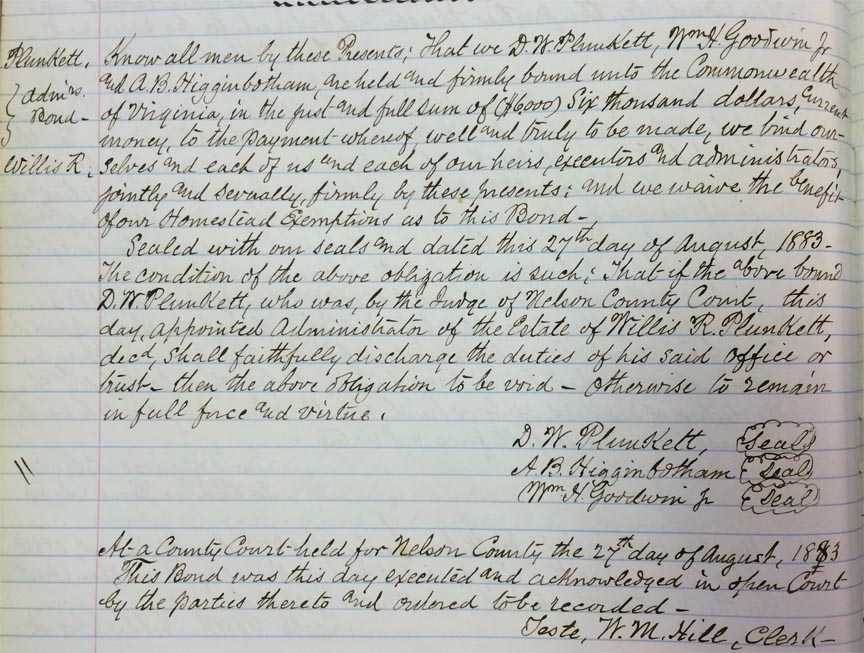 Plunkett,
} Admrs.
Bond -
Willis R,
Know all men by these Presents; That we D. W. Plunkett, Wm H. Goodwin Jr
and A. B. Higginbotham, are held and firmly bound unto the Commonwealth
of Virginia, in the just and full sum of ($6000) Six thousand dollars, Current
money, to the payment whereof, well and truly to be made, we bind our-
selves and each of us and each of our heirs, executors and administrators,
jointly and severally, firmly by these presents; and we waive the benefit
of our Homestead Exemptions as to this Bond -
Sealed with our seals and dated this 27th day of August, 1883 -
The condition of the above obligation is such; That if the above bound
D. W. Plunkett, who was, by the Judge of Nelson County Court, this
day, appointed Administrator of the Estate of Willis R. Plunkett,
decd, shall faithfully discharge the duties of his said office or
trust - then the above obligation to be void - otherwise to remain
in full force and virtue.
D. W. Plunkett, Seal
A. B. Higginbotham Seal
Wm H. Goodwin Jr Seal
At a County Court held for Nelson County the 27th day of August, 1883
This Bond was this day executed and acknowledged in open Court
by the parties thereto and ordered to be recorded -
Teste, W. M. Hill, Clerk -